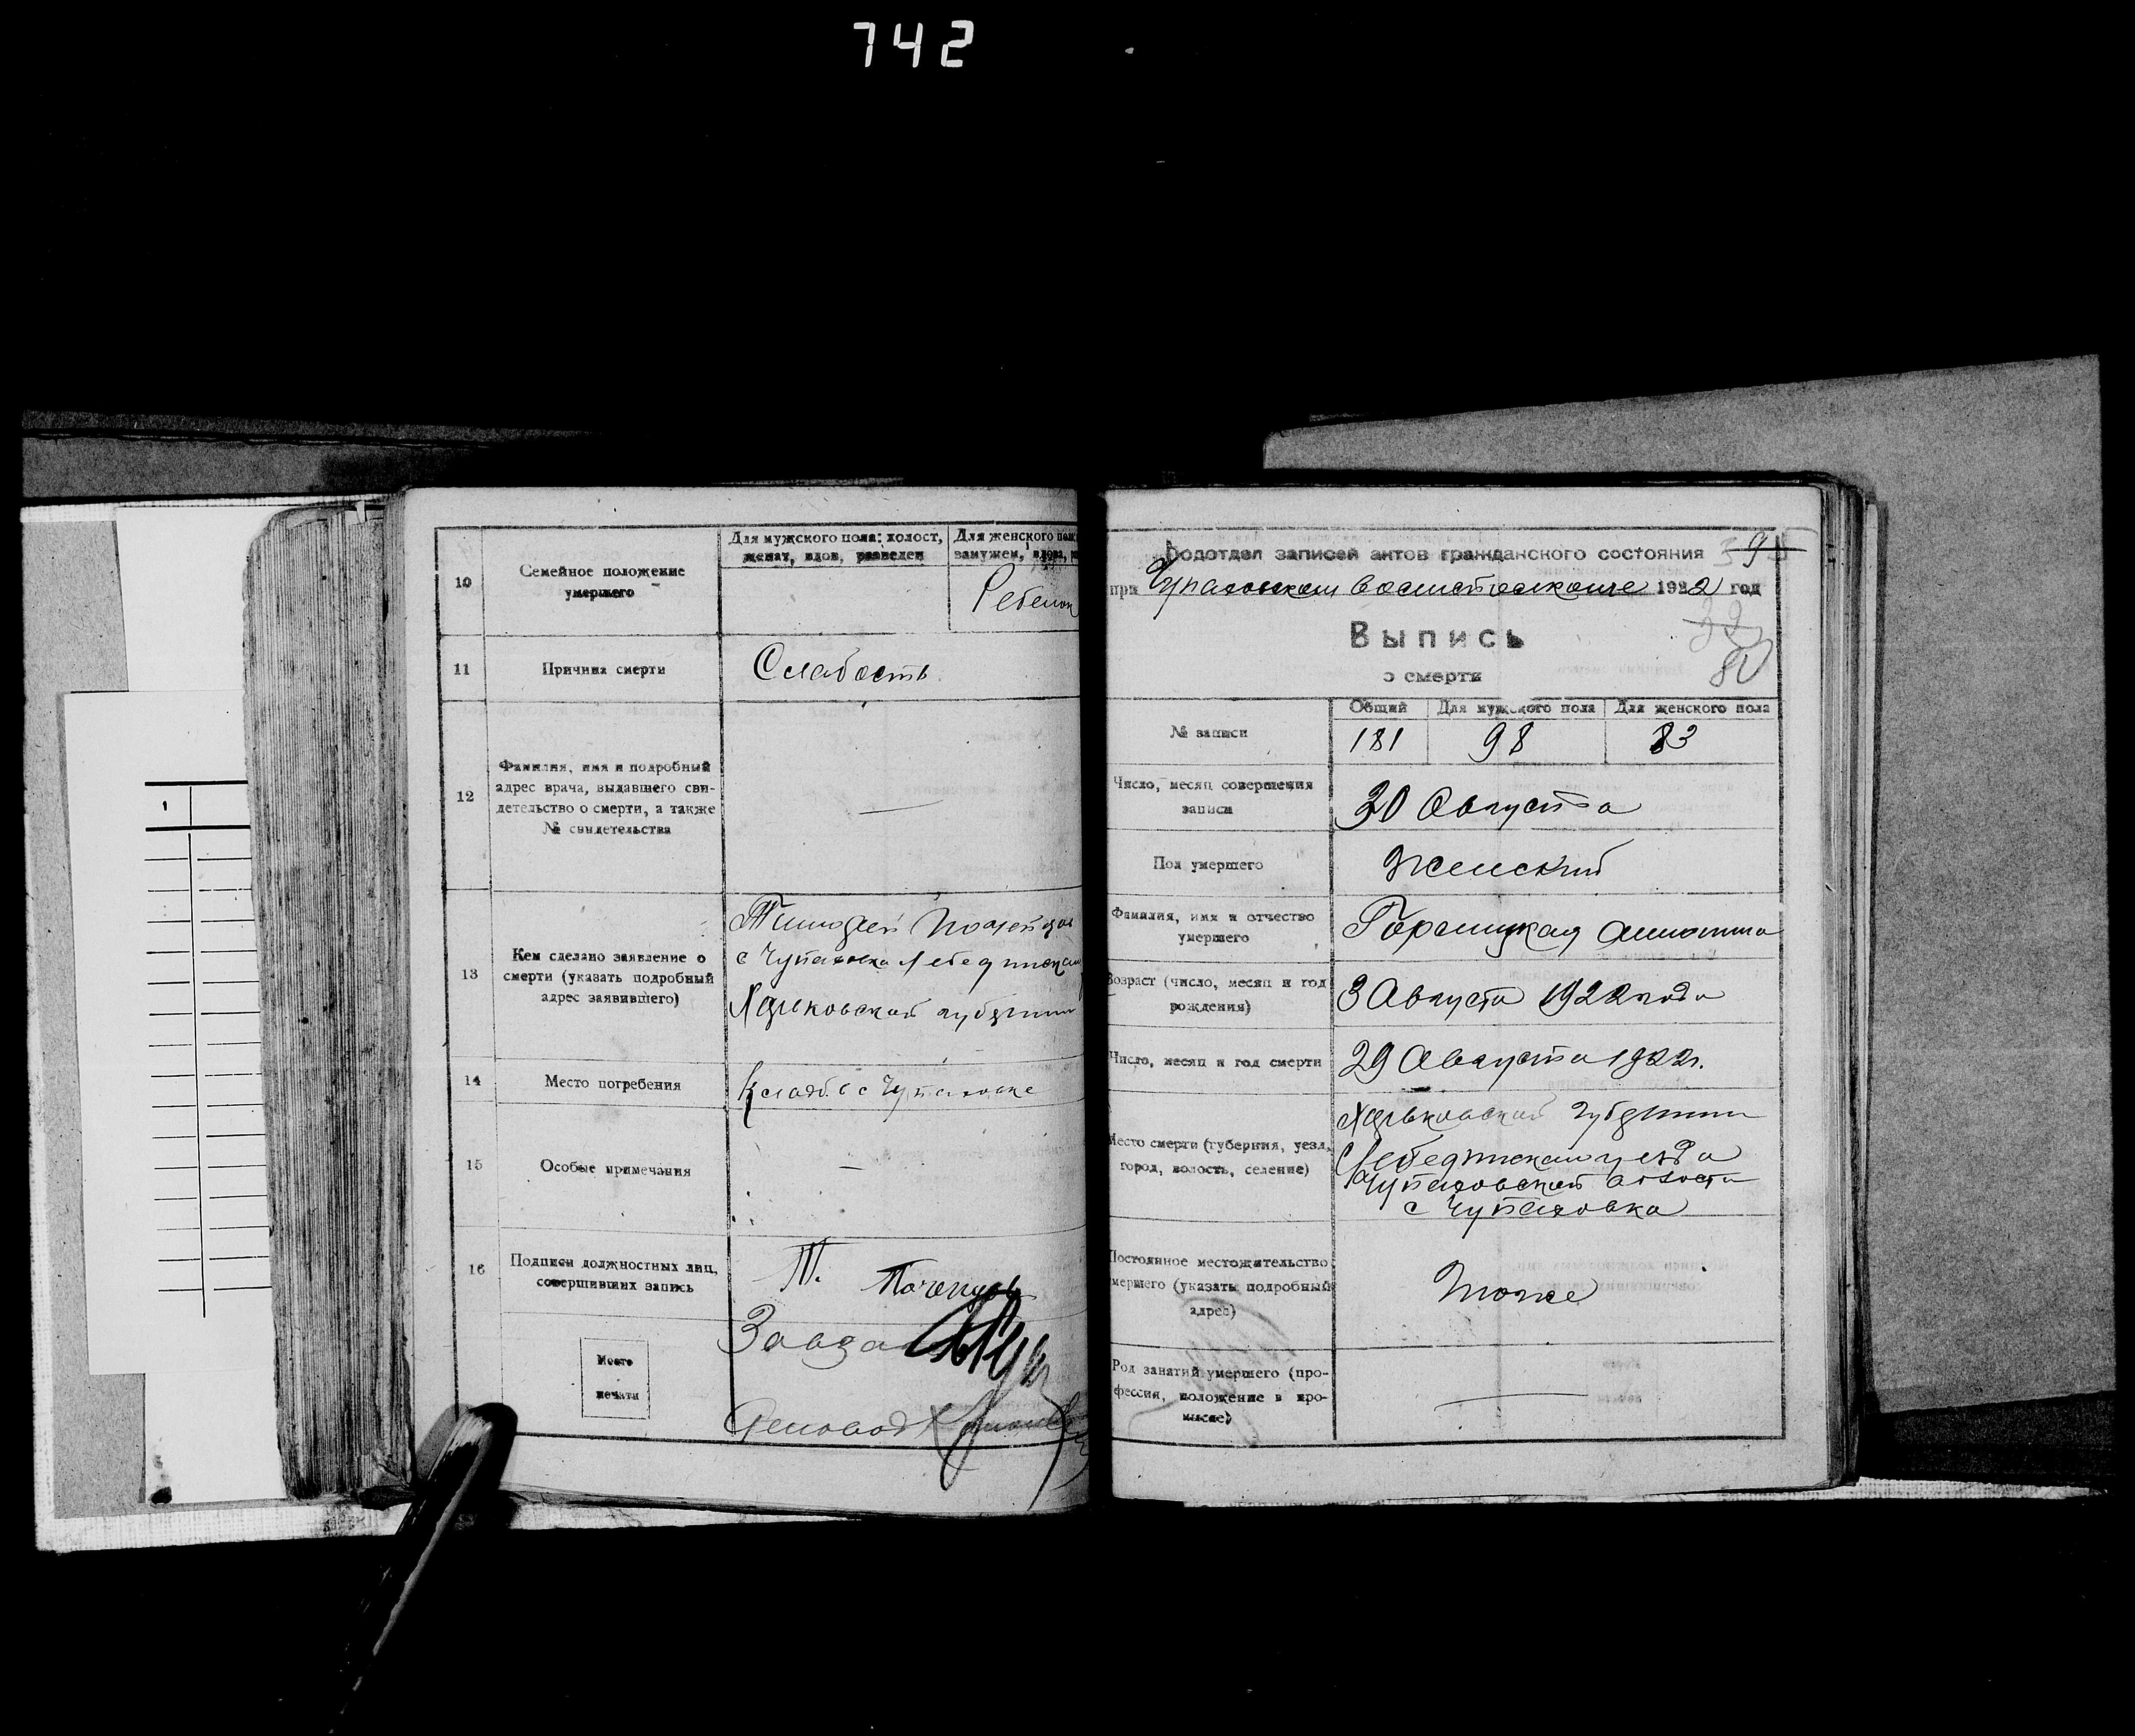 742
10
Семейное положение
умершего
Для мужского пола: холост,
женат, вдов, разведен
Для женского пол
замужем, вдова,
Ребенок
11
Причина смерти
Слабость
12
Фамилия, имя и подробный
адрес врача, выдавшего сви-
детельство о смерти, а также
№ свидетельства
—
13
Кем сделано заявление о
смерти (указать подробный
адрес заявившего)
Тимофей
с Чупаховка Лебединскаг
Харьковской губернии
14
Место погребения
Кладб. в с Чупаховке
15
Особые примечания
—
16
Подписи должностных лиц,
совершивших запись
Т.
Завза
Место
печати
Деловод
Подотдел записей актов гражданского состояния
9
при Чупаховском волисполкоме 1922 год
32
80
Выпись
о смерти
№ записи
Общий
Для мужского пола
Для женского пола
181
98
83
Число, месяц совершения
записи
30 Августа
Пол умершего
Женский
Фамилия, имя и отчество
умершего
Горницкая
Возраст (число, месяц и год
рождения)
3 Августа 1922 года
Число, месяц и год смерти
29 Августа 1922 г.
Место смерти (губерния, уезд,
город, волость, селение)
Харьковской Губернии
Лебединскаго уезда
Чупаховской волости
с Чупаховка
Постоянное местожительство
умершего (указать подробный
адрес)
Тоже
Род занятий умершего (про-
фессия, положение в про-
мысле)
—
1